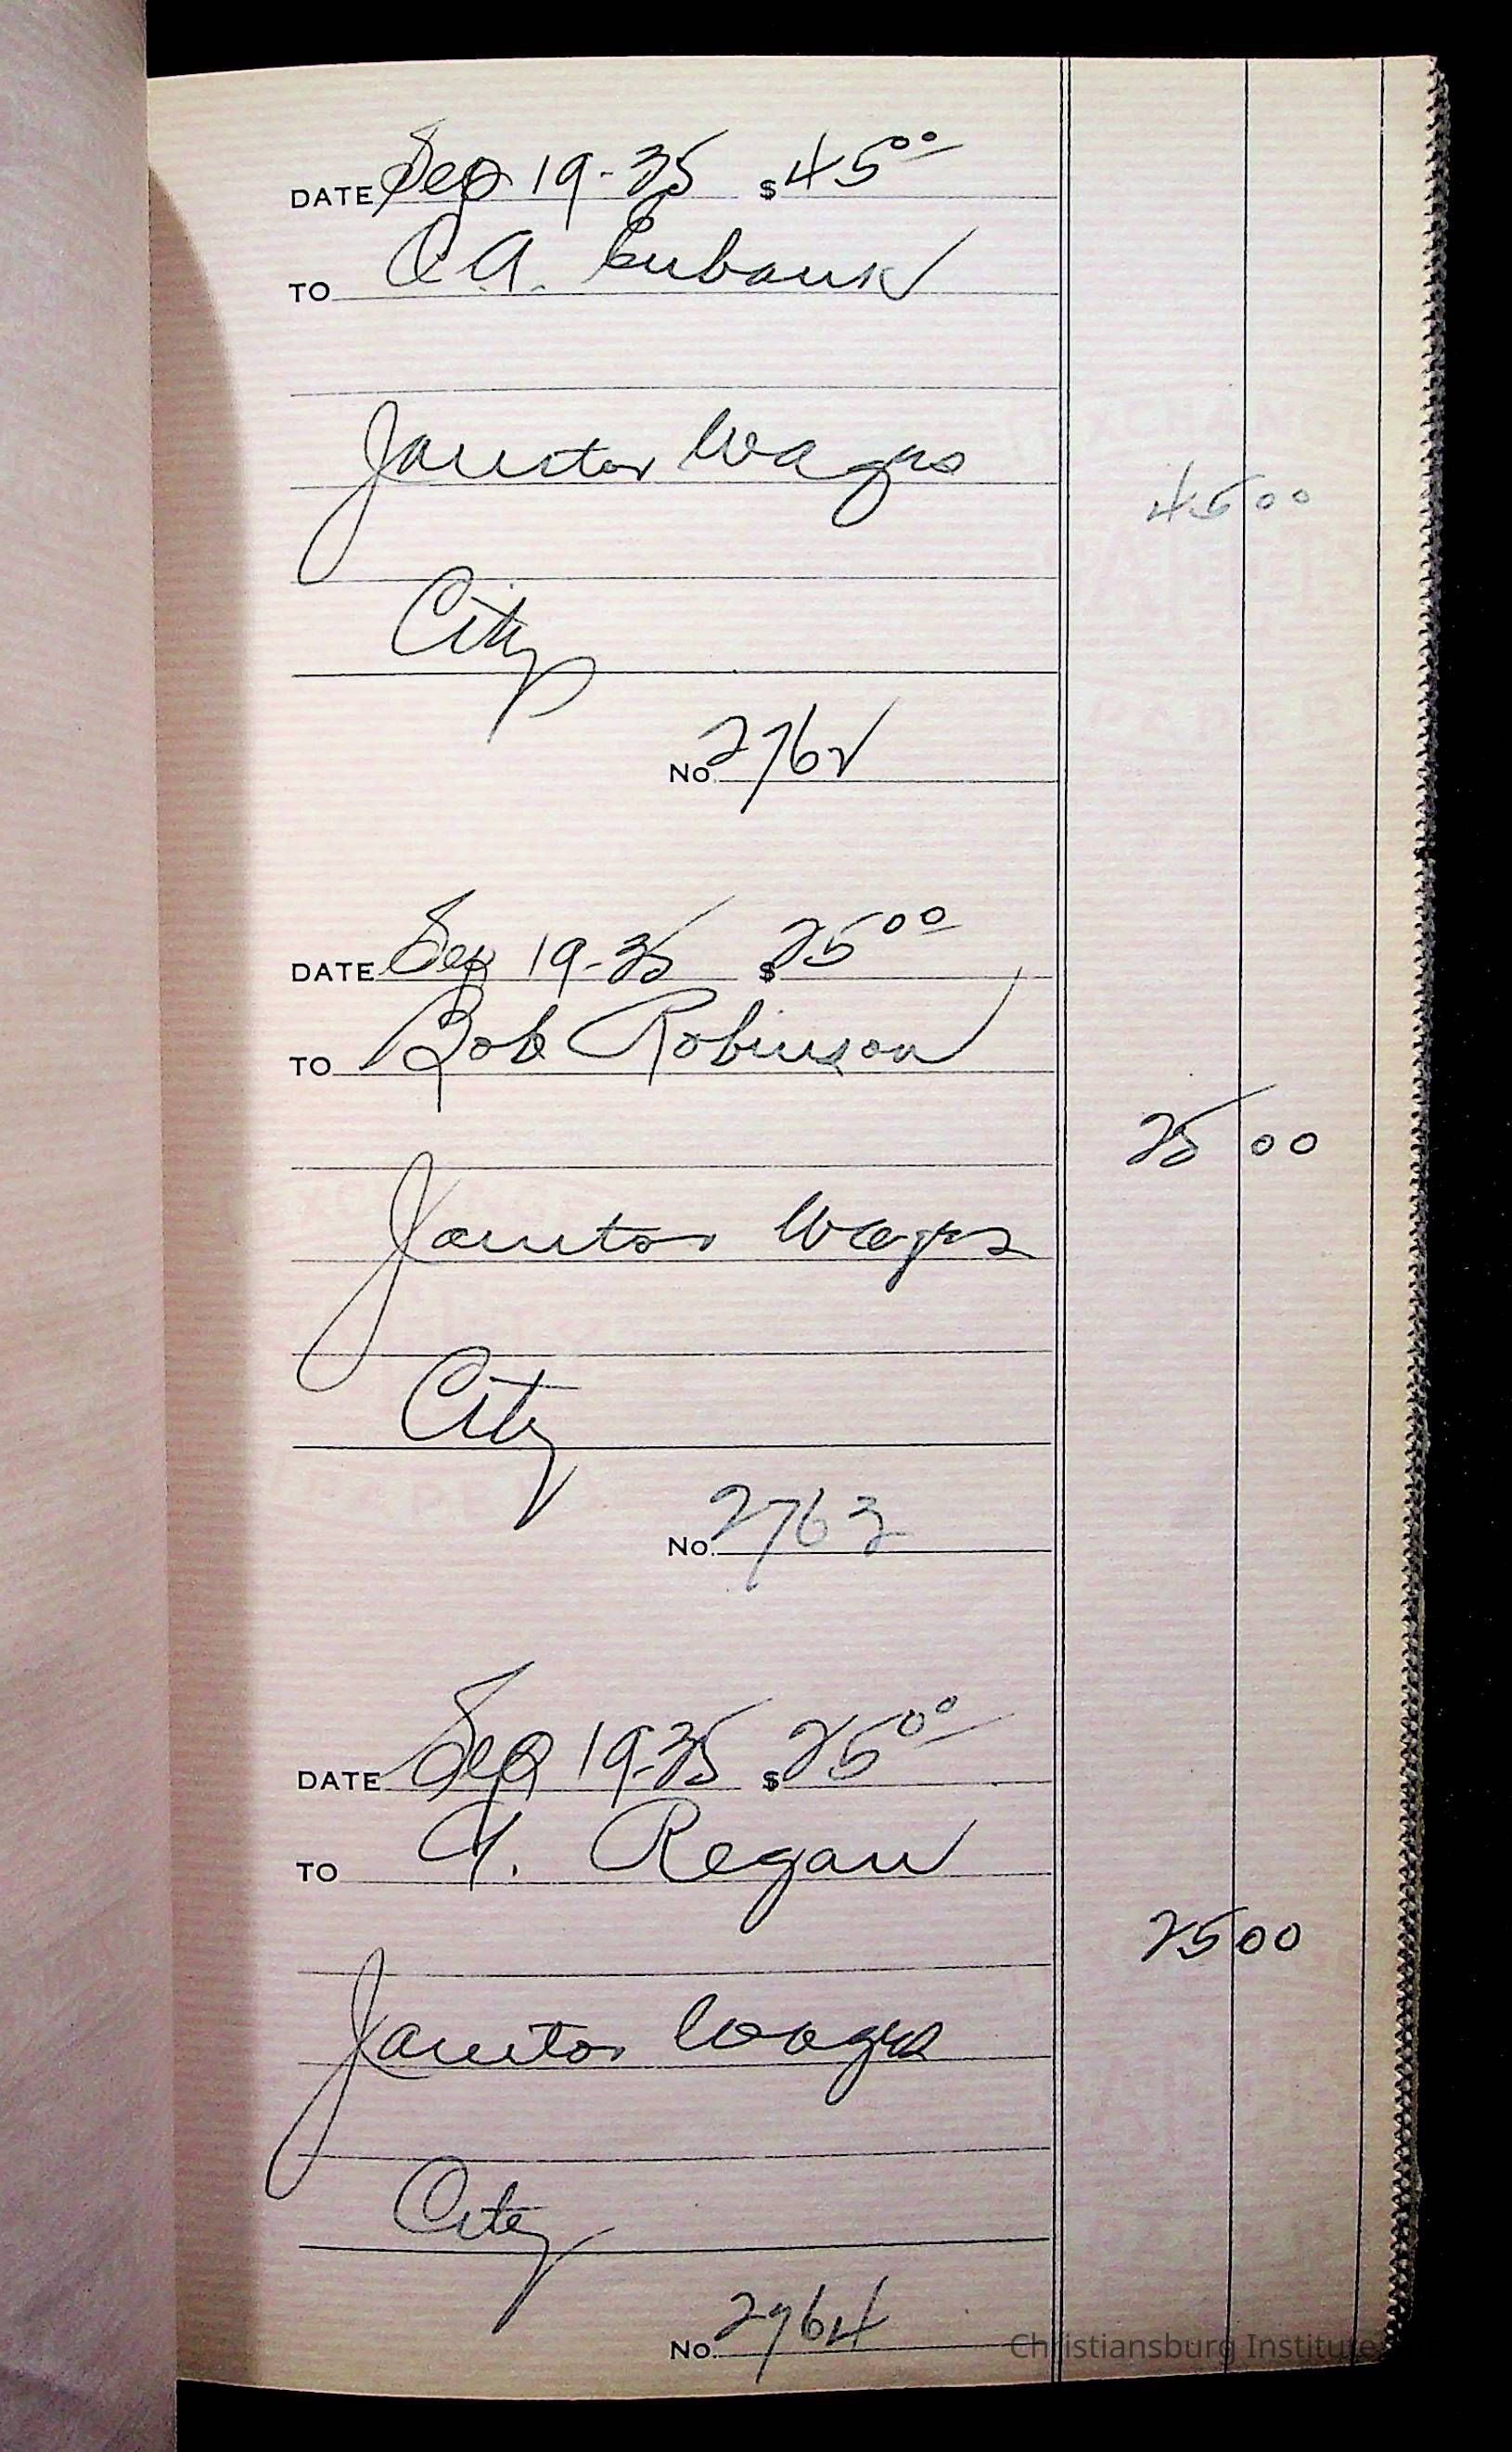 DATE Sep 19-35 $45 00
TO C.A. Eubank
Janitor Wages
45 00
City
No. 2762
DATE Sep 19-35 $25 00
TO Bob Robinson
25 00
Janitor Wages
City
No. 2763
DATE Sep 19-35 $25 00
TO Regan
25 00
Janitor Wages
City
No. 2764
Christiansburg Institute